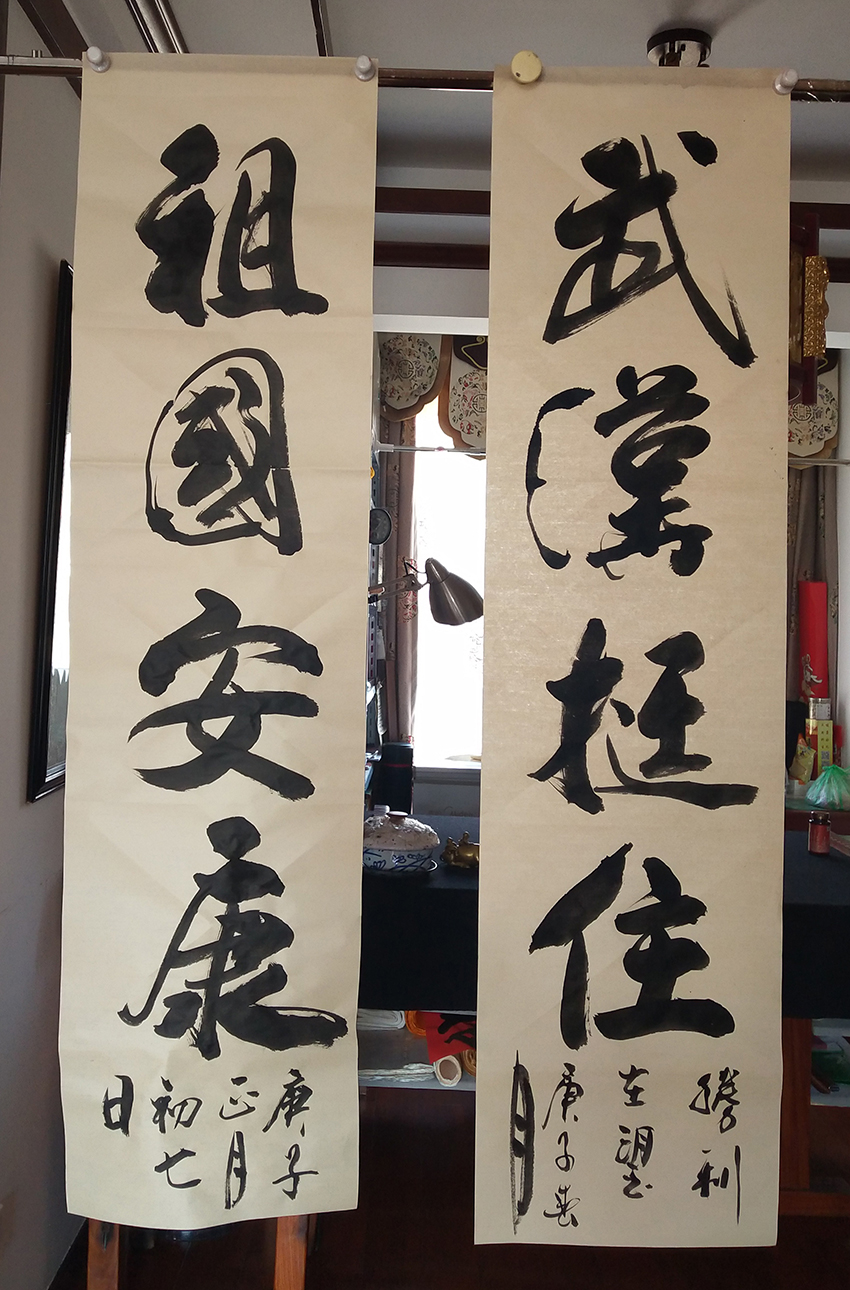 武漢挺住
勝利
在望
庚子春
月
祖國安康
庚子
正月
初七
日